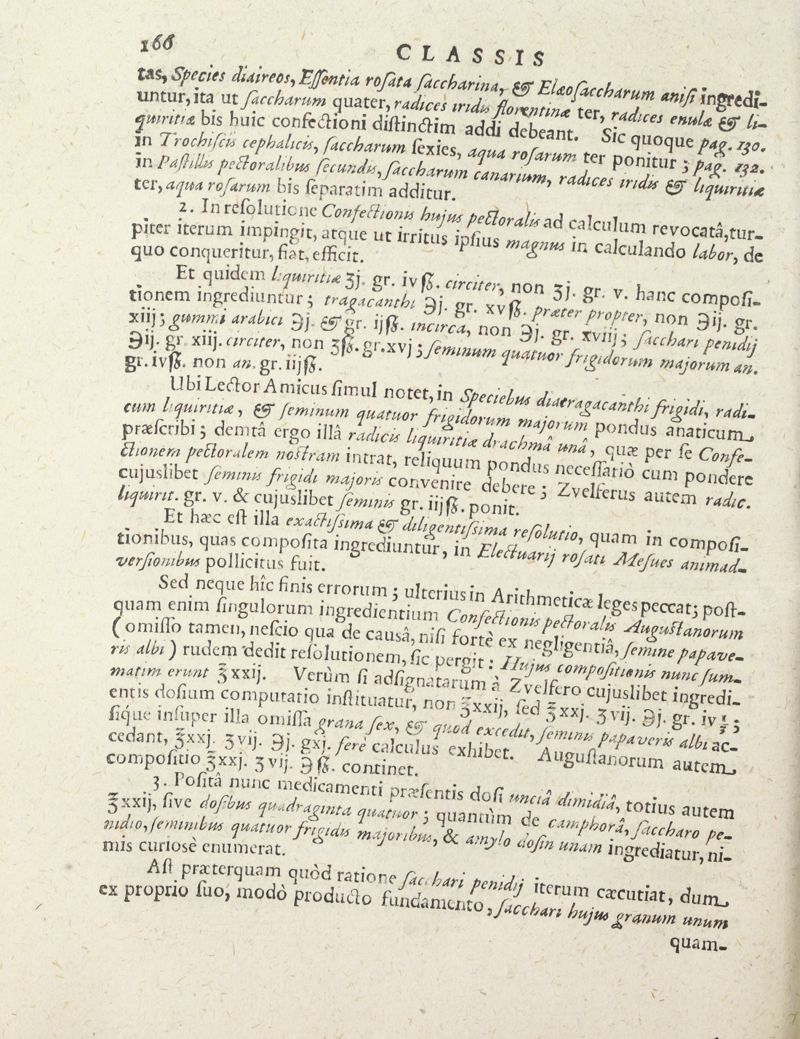 166
CLASSIS
tas, Species diaireos, Essentia rosata saccharina, & Elæosaccharum anisi ingredi-
untur, ita ut saccharum quater, radices iridis florentinæ ter, radices enulæ & li-
quiritiæ bis huic confectioni distinctim addi debeant. Sic quoque pag. 130.
in Trochiscis cephalicis, saccharum sexies, aqua rosarum ter ponitur; pag. 132.
in Pastillis pectoralibus secundis, saccharum canarium, radices iridis & liquiritiæ
ter, aqua rosarum bis separatim additur.
2. In resolutione Confectionis hujus pectoralis ad calculum revocatâ, tur-
piter iterum impingit, atque ut irritus ipsius magnus in calculando labor, de
quo conqueritur, fiat, efficit.
Et quidem liquiritiæ ʒj. gr. ivß. circiter, non ʒj. gr. v. hanc composi-
tionem ingrediuntur; tragacanthi ℈j. gr. xvß. præter propter, non ℈ij. gr.
xiij; gummi arabici ℈j. & gr. ijß. incirca, non ℈j. gr. xviij; sacchari penidij
℈ij. gr. xiij. circiter, non ʒß. gr. xvj; seminum quatuor frigidorum majorum an.
gr. ivß. non an. gr. iijß.
Ubi Lector Amicus simul notet, in Speciebus diatragacanthi frigidi, radi-
cum liquiritiæ, & seminum quatuor frigidorum majorum pondus anaticum
præscribi; demtâ ergo illâ radicis liquiritiæ drachmâ unâ, quæ per se Confe-
ctionem pectoralem nostram intrat, reliquum pondus necessariò cum pondere
cujuslibet seminis frigidi majoris convenire debere; Zvelferus autem radic.
liquirit. gr. v. & cujuslibet seminis gr. iijß. ponit.
Et hæc est illa exactissima & diligentissima resolutio, quam in composi-
tionibus, quas composita ingrediuntur, in Electuarij rosati Mesues animad-
versionibus pollicitus fuit.
Sed neque hîc finis errorum; ulterius in Arithmeticæ leges peccat; post-
quam enim singulorum ingredientium Confectionis pectoralis Augustanorum
(omisso tamen, nescio qua de causâ, nisi fortè ex negligentiâ, semine papave-
ris albi) rudem dedit resolutionem, sic pergit: Hujus compositionis nunc sum-
matim erunt ℥xxij. Verùm si adsignatarum à Zvelfero cujuslibet ingredi-
entis dosium computatio instituatur, non ℥xxij, sed ℥xxj. ʒvij. ℈j. gr. iv;
sique insuper illa omissa grana sex, & quod excedit, seminis papaveris albi ac-
cedant, ℥xxj. ʒvij. ℈j. gxj. fere calculus exhibet. Augustanorum autem
compositio ℥xxj. ʒvij. ℈ß. continet.
3. Positâ nunc medicamenti præsentis dosi unciâ dimidiâ, totius autem
℥xxij, sive dosibus quadraginta quatuor; quantùm de camphorâ, saccharo pe-
nidio, seminibus quatuor frigidis majoribus, & amylo dosin unam ingrediatur, ni-
mis curiosè enumerat.
Ast præterquam quòd ratione sacchari penidij iterum cæcutiat, dum
ex proprio suo, modò producto fundamento, sacchari hujus granum unum
quam-